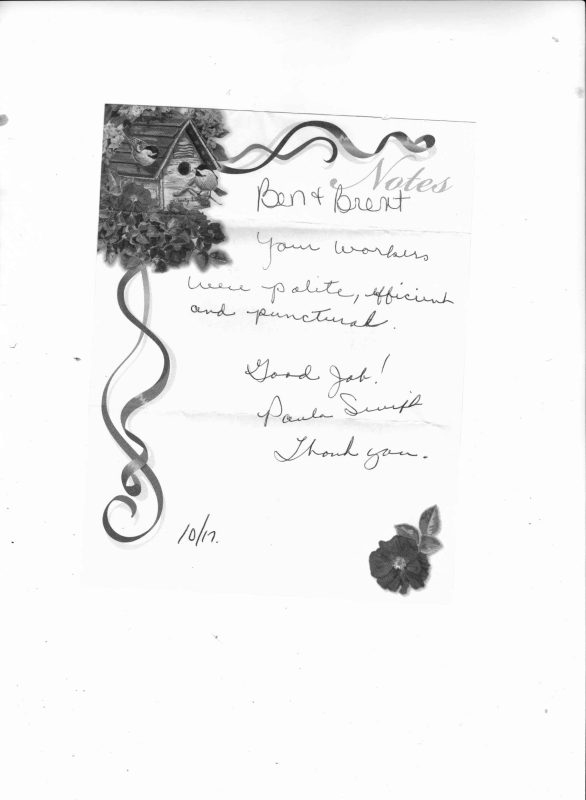 Notes
Ben & Brent
Your workers
were polite, efficient
and punctural.
Good Job!
Paula Swift
Thank you.
10/17.